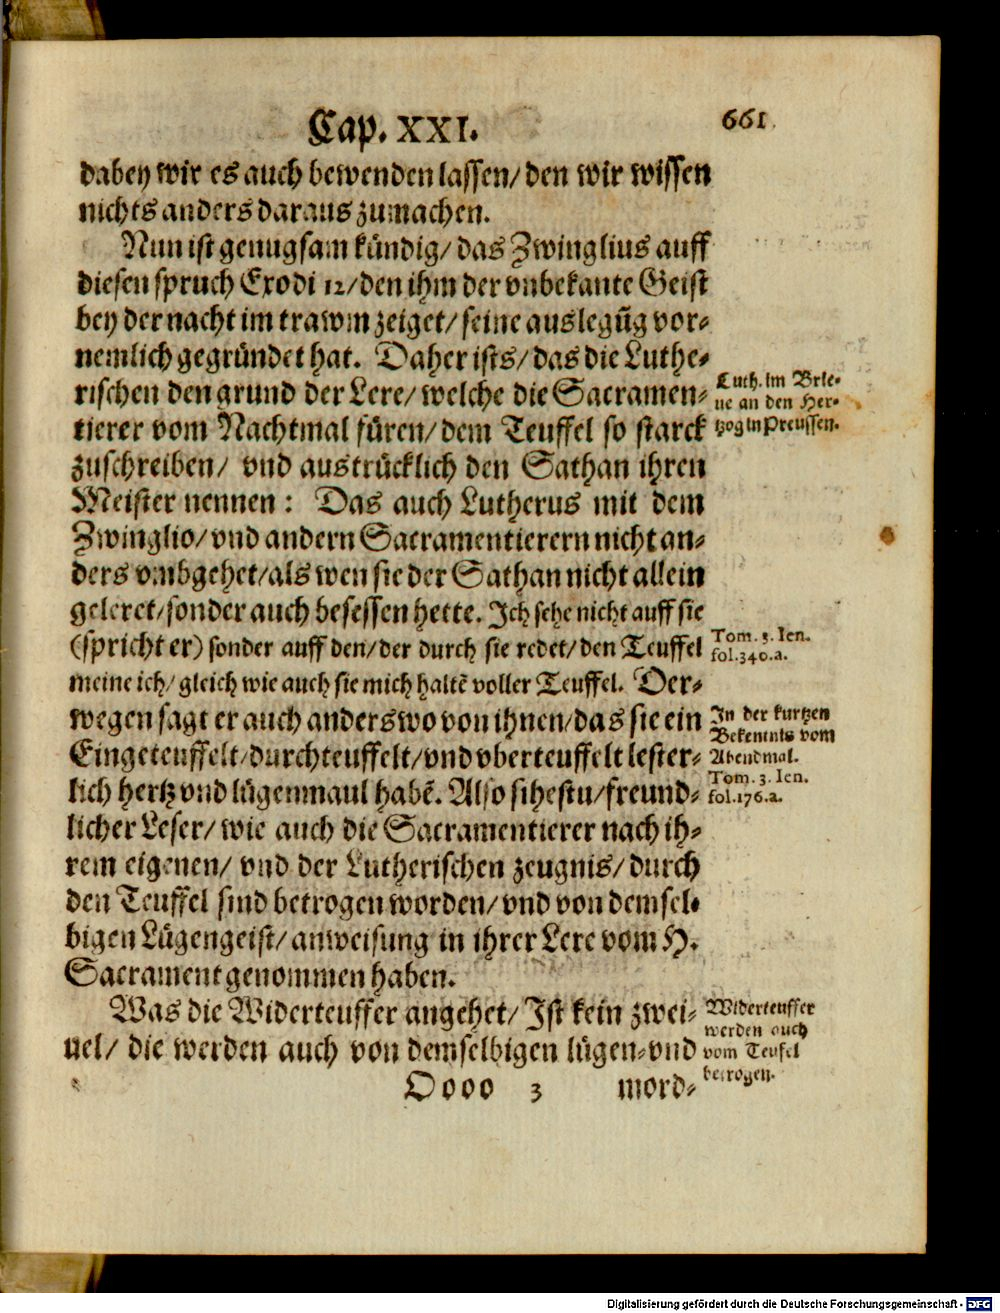 Cap. XXI.
661
dabey wir es auch bewenden lassen/ den wir wissen
nichts anders daraus zumachen.
Nun ist genugsam kündig/ das Zwinglius auff
diesen spruch Exodi 12/ den ihm der vnbekante Geist
bey der nacht im trawm zeiget/ seine auslegūg vor-
nemlich gegründet hat. Daher ists/ das die Luthe-
rischen den grund der Lere/ welche die Sacramen-
tierer vom Nachtmal füren/ dem Teuffel so starck
zuschreiben/ vnd austrücklich den Sathan ihren
Meister nennen: Das auch Lutherus mit dem
Zwinglio/ vnd andern Sacramentierern nicht an-
ders vmbgehet/ als wen sie der Sathan nicht allein
geleret/ sonder auch besessen hette. Ich sehe nicht auff sie
(spricht er) sonder auff den/ der durch sie redet/ den Teuffel
meine ich/ gleich wie auch sie mich haltē voller Teuffel. Der-
wegen sagt er auch anderswo von ihnen/ das sie ein
Eingeteuffelt/ durchteuffelt/ vnd vberteuffelt lester-
lich hertz vnd lügenmaul habē. Also sihestu/ freund-
licher Leser/ wie auch die Sacramentierer nach ih-
rem eigenen/ vnd der Lutherischen zeugnis/ durch
den Teuffel sind betrogen worden/ vnd von demsel-
bigen Lügengeist/ anweisung in ihrer Lere vom H.
Sacrament genommen haben.
Was die Widerteuffer angehet/ Ist kein zwei-
uel/ die werden auch von demselbigen lügen-vnd
Oooo 3
mord-
Luth. im Brie-
ue an den Her-
tzog in Preussen.
Tom. 3. Ien.
fol. 340.a.
In der kurtzen
Bekentnis vom
Abendmal.
Tom. 3. Ien.
fol. 176.a.
Widerteuffer
werden auch
vom Teufel
betrogen.
Digitalisierung gefördert durch die Deutsche Forschungsgemeinschaft - DFG